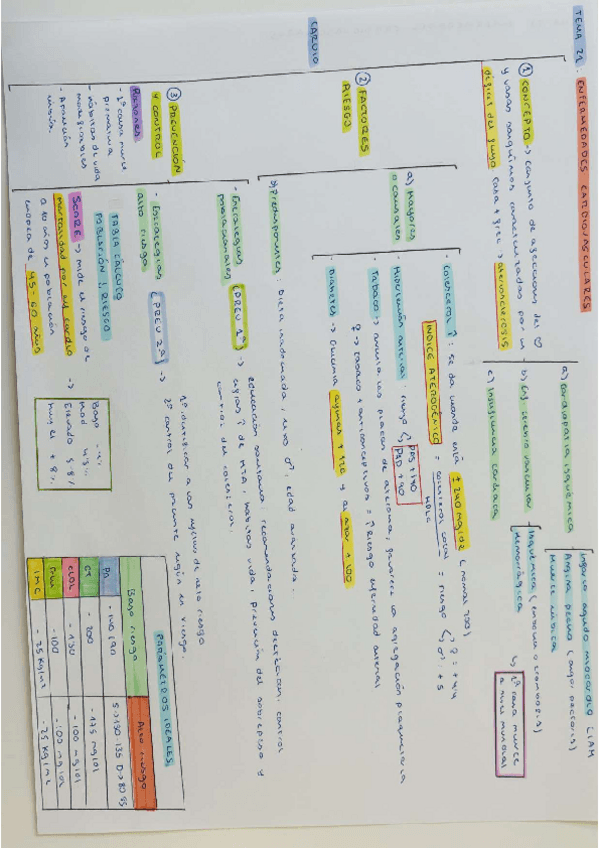 TEMA 21: ENFERMEDADES CARDIOVASCULARES
① CONCEPTO → conjunto de afecciones del ♡
y vasos sanguíneos caracterizadas por un
déficit del flujo
causa + frec → aterosclerosis
a) cardiopatía isquémica
Infarto agudo miocardio (IAM
Angina pecho (angor pectoris)
Muerte súbita
b) Enf cerebro vascular
Isquémica (embolia o trombosis)
Hemorrágica
↳ 1ª causa muerte
a nivel mundial
c) Insuficiencia cardíaca
CARDIO
② FACTORES
RIESGO
a) Mayores
o causales
- Colesterol ↑: se da cuando está ± 240 mg/dl (normal 200)
ÍNDICE ATEROGÉNICO = colesterol total = riesgo
HDLC
♀ = + 4,4
♂ = + 5
- Hipertensión arterial: riesgo
PAS + 140
PAD + 90
- Tabaco → placas de ateroma, favorece la agregación plaquetaria
♀ → tabaco + anticonceptivos = ↑ Riesgo enfermedad arterial
- Diabetes → Glucemia ayunas + 126 y al azar + 200
b) Predisponentes: Dieta inadecuada, sexo ♂, edad avanzada.
③ PREVENCIÓN
Y CONTROL
Razones
- 1ª causa muerte
prematura
- Hábitos de vida
modificables
- Aparición
súbita.
- Estrategias
poblacionales
(PREV 1ª) →
educación sanitaria: recomendaciones dietéticas, control
cifras ↑ de HTA, hábitos vida, prevención del sobrepeso y
control del colesterol.
- Estrategias
alto riesgo
(PREV 2ª) →
1º identificar a los individuos de alto riesgo
2º control del paciente según su riesgo.
TABLA CÁLCULO
POBLACIÓN Y RIESGO
SCORE → mide el riesgo de
mortalidad por enf cardio
a 10 años en población
europea de 45-60 años
→
Bajo
Mod
Elevado 5,8%
Muy el + 8%
PARÁMETROS IDEALES
Bajo riesgo
Alto riesgo
PA
- 140/90
S → 130-135 D → 80-85
CT
- 200
- 175 mg/dl
- 130
- 100 mg/dl
- 100
- 100 mg/dl
IMC
- 25 kg/m2